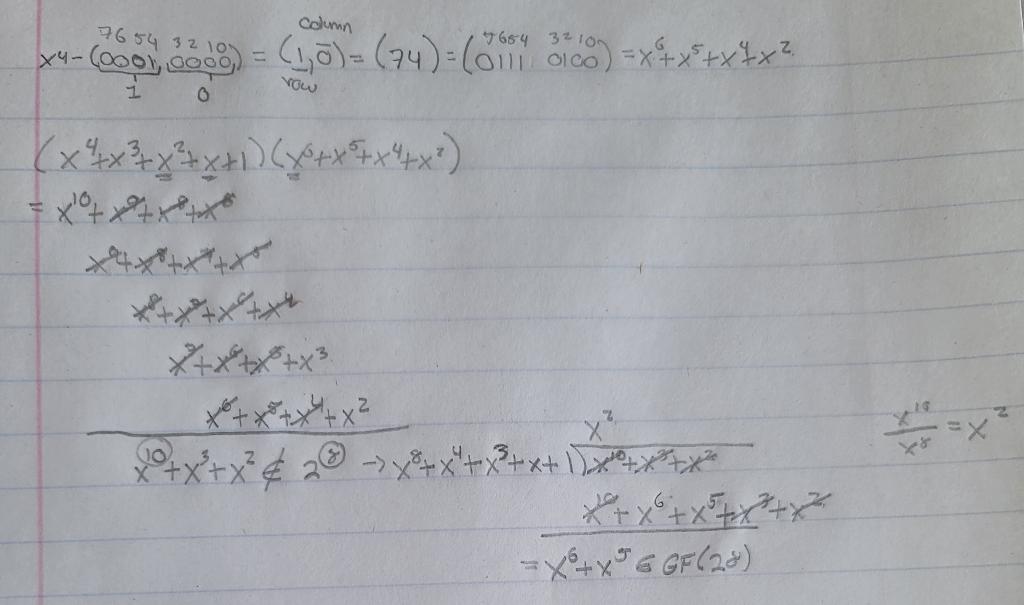 column
7654 3210 7654 3210
x4-(0001,0000,) = (1,0) = (74) = (0111 0100) = x^6+x^5+x^4+x^2
1 0 row
(x^4+x^3+x^2+x+1)(x^6+x^5+x^4+x^2)
= x^10+x^9+x^8+x^6
x^9+x^8+x^7+x^5
x^8+x^7+x^6+x^4
x^7+x^6+x^5+x^3
x^6+x^5+x^4+x^2
x^2
x^10/x^8 = x^2
x^10+x^3+x^2 ∉ 2^8 → x^8+x^4+x^3+x+1)x^10+x^3+x^2
x^10+x^6+x^5+x^3+x^2
= x^6+x^5 ∈ GF(28)